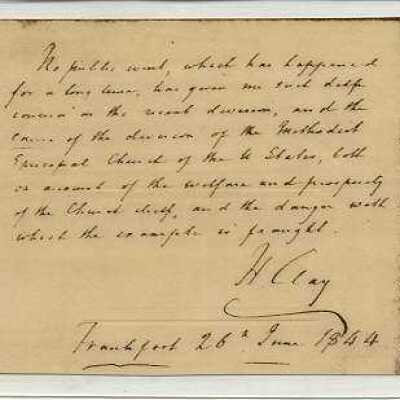 No public event, which has happened
for a long time, has given me such deep
concern as the recent division, and the
cause of the division of the Methodist
Episcopal Church of the U States, both
on account of the welfare and prosperity
of the Church itself, and the danger with
which the example is fraught.
H Clay
Frankfort 26th June 1844